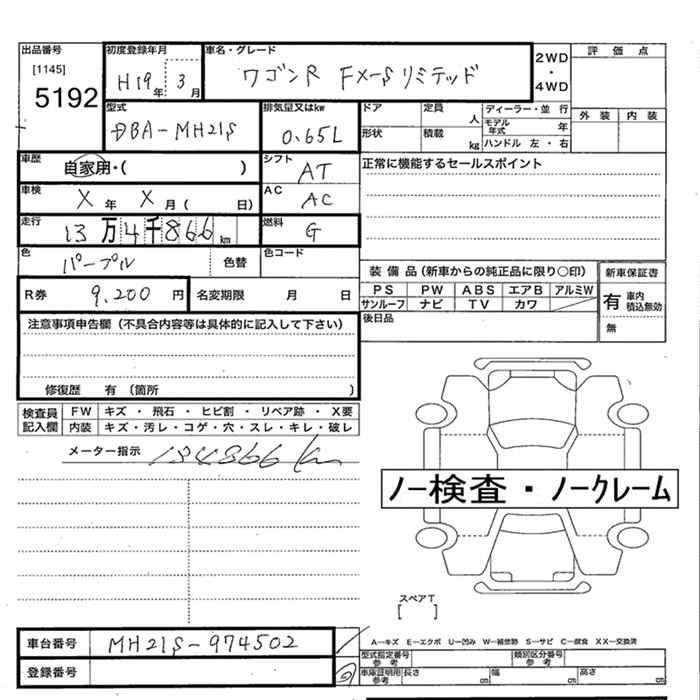 出品番号
[1145]
5192
初度登録年月
H19年 3月
車名・グレード
ワゴンR FX-Sリミテッド
2WD
・
4WD
評価点
外装 内装
型式
DBA-MH21S
排気量又はkw
0.65L
ドア
定員 人
ディーラー・並行
モデル年式 年
形状
積載 kg
ハンドル 左・右
車歴
自家用・( )
シフト
AT
正常に機能するセールスポイント
車検
X年 X月( 日)
AC
AC
走行
13万4千866km
燃料
G
色
パープル
色替
色コード
装備品(新車からの純正品に限り○印)
新車保証書
PS PW ABS エアB アルミW
サンルーフ ナビ TV カワ
有 車内積込無効
無
R券 9,200円
名変期限 月 日
後日品
注意事項申告欄(不具合内容等は具体的に記入して下さい)
修復歴 有 (箇所 )
検査員記入欄
FW キズ・飛石・ヒビ割・リペア跡・X要
内装 キズ・汚レ・コゲ・穴・スレ・キレ・破レ
メーター指示 134866km
ノー検査・ノークレーム
スペアT
[ ]
車台番号 MH21S-974502
登録番号
A―キズ E―エクボ U―凹み W―補修跡 S―サビ C―腐食 XX―交換済
型式指定番号 参考
類別区分番号 参考
車庫証明用 参考
長さ cm
幅 cm
高さ cm